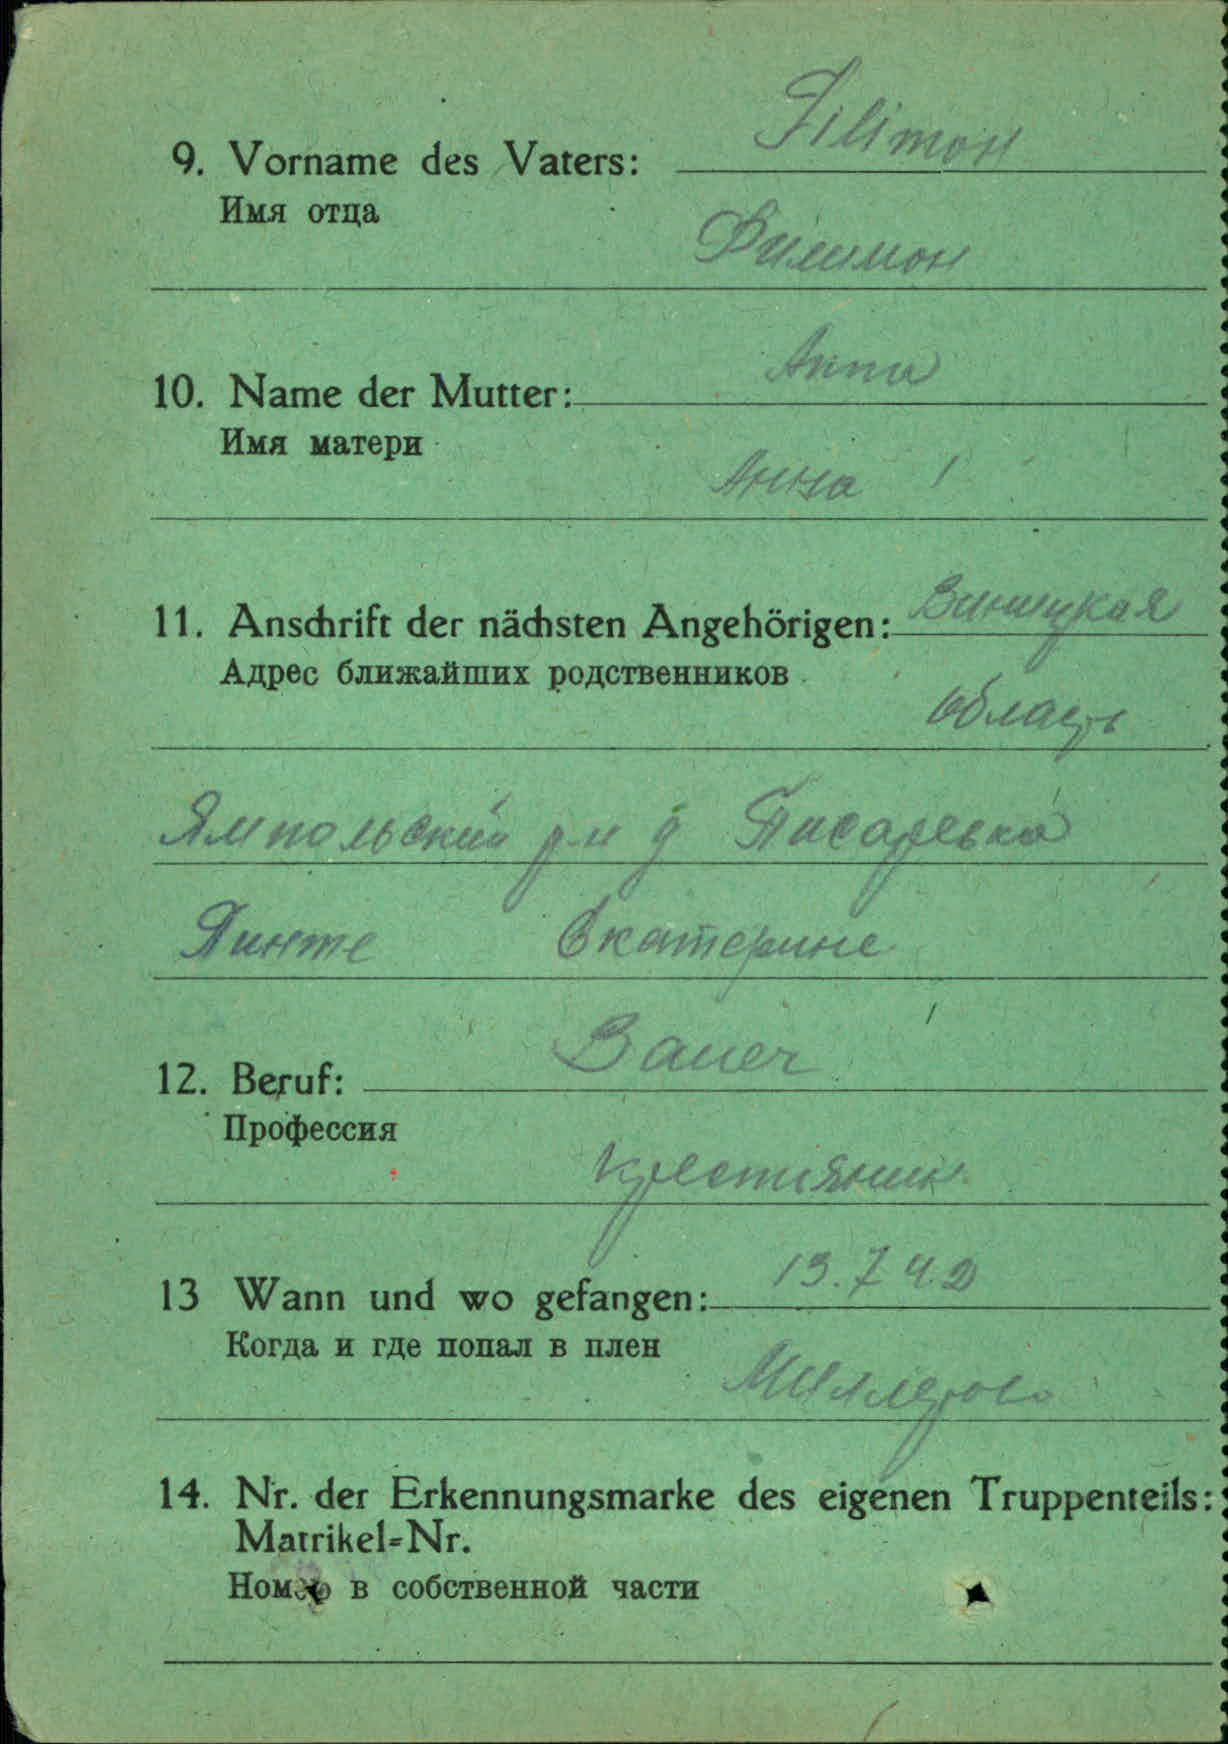 Filimon
9. Vorname des Vaters:
Имя отца
Филимон
Anna
10. Name der Mutter:
Имя матери
Анна
11. Anschrift der nächsten Angehörigen: Виницкая
Адрес ближайших родственников
область
Ямпольский р-н д Писаревка
Пинте Екатерине
Bauer
12. Beruf:
Профессия
крестиянин
13 Wann und wo gefangen: 13.7 42
Когда и где попал в плен
Миллерово
14. Nr. der Erkennungsmarke des eigenen Truppenteils:
Matrikel-Nr.
Номер в собственной части